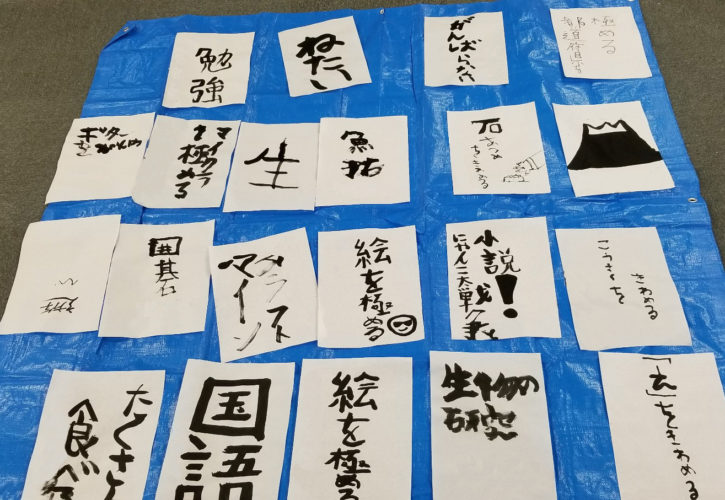 勉強
ねたい
極める
ギター
マイクラ
極める
生
魚拓
石
あつめ
をきわめる
遊
い
囲碁石
ラスト
マイン
絵を極める
小説!
にゃんこ大戦争
こうさくを
きわめる
たくさん
食べ
国語
絵を極める
生物の
研究
をきわめる